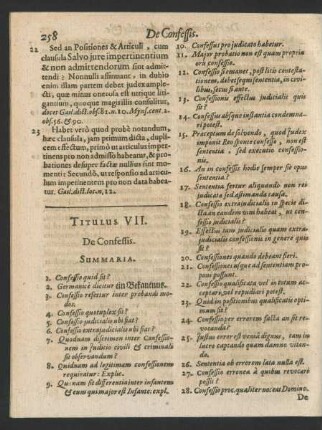 258
De Confessis.
22 Sed an Positiones & Articuli, cum
clausula Salvo jure impertinentium
& non admittendorum sint admit-
tendi? Nonnulli affirmant, in dubio
enim illam partem debet judex ample-
cti, quæ minus onerosa est utrique liti-
gantium,
23 Habet verò quod probè notandum,
hæc clausula, jam primum dicta, dupli-
cem effectum, primò ut articulus imper-
tinens pro non admisso habeatur, & pro-
bationes desuper factæ nullius sint mo-
menti: Secundò, ut responsio ad articu-
lum impertinentem pro non data habea-
tur.
TITULUS VII.
De Confessis.
SUMMARIA.
1. Confessio quid sit?
2. Germanicè dicitur ein Bekantnus.
3. Confessio refertur inter probandi mo-
dos.
4. Confessio quotuplex sit?
5. Confessio judicialis ubi fiat?
6. Confessio extrajudicialis ubi fiat?
7. Quidnam discrimen inter Confessio-
nem in judicio civili & criminali
sit observandum?
8. Quidnam ad legitimam confessionem
requiratur: Expl.
9. Quænam sit differentia inter infantem
& eum qui major est Infante. expl.
10. Confessus pro judicato habetur.
11. Major probatio non est quam propriæ
oris confessio.
12. Confessio semiplenè, post litis contesta-
tionem, debet sequi sententia, in civi-
libus, secus si ante.
13. Confessionis effectus Judicialis quis
sit?
14. Confessus absque instantia condemna-
ri potest.
15. Præceptum de solvendo, quod Judex
imponit Reo sponte confesso, non est
sententia, sed executio confessio-
nis.
16. An ex confessis hodie semper sit opus
sententia?
17. Sententia fertur aliquando non ren-
judicatæ sed
18. Confessio extrajudicialis in specie di-
cta an eandem vim habeat, ac confes-
sio judicialis?
19. Effectus tam judicialis quam extra-
judicialis confessionis in genere quis
sit?
20. Confessiones quando debeant fieri.
21. Confessiones usque ad sententiam pro-
poni possunt.
22. Confessio qualificata vel in totum ac-
ceptari, vel repudiari potest.
23. Quid in positionibus qualificatis opti-
mum sit?
24. Confessio per errorem facta an sit re-
vocanda?
25. Justus error est veniâ dignus, tam in
lucro captando quam damno vitan-
do.
26. Sententia ob errorem lata nulla est.
27. Confessio erronea à quibus revocari
possit?
28. Confessio proc. qualiter noceat Domino.
De